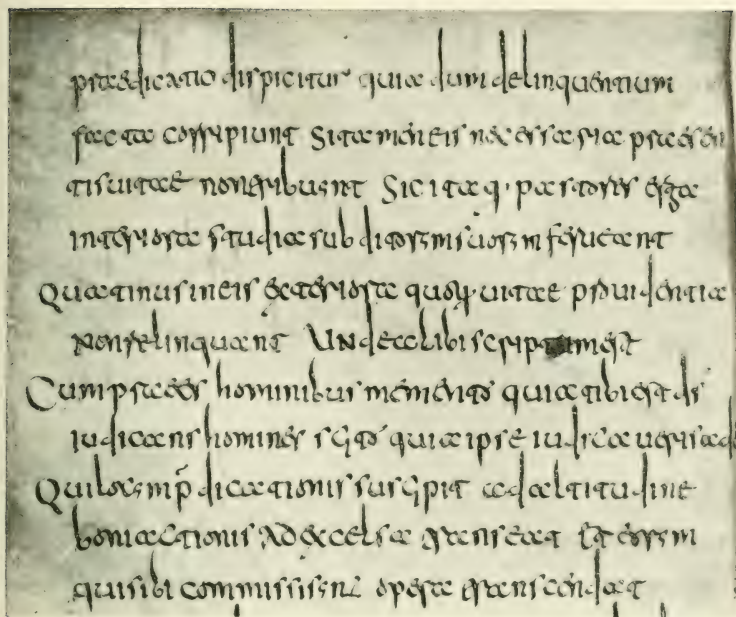 praedicatio dispicitur quia dum delinquentium
facta corripiunt si tamen eis necessaria praesen
tis uitae non tribuent Sic itaq· pastores erga
interiora studia subditorum suorum ferueant
Quatinus in eis exteriora quoq· uitae prouidentia
non relinquant Unde alibi scriptum est
Cum praees hominibus memento quia tibi est ds
iudicans homines scito quia ipse iudicaueris ad
Qui locum p̄dicationis suscipit ad altitudine
boni actionis ad excelsa transeat et eorum
qui sibi commissi sunt opera transcendat